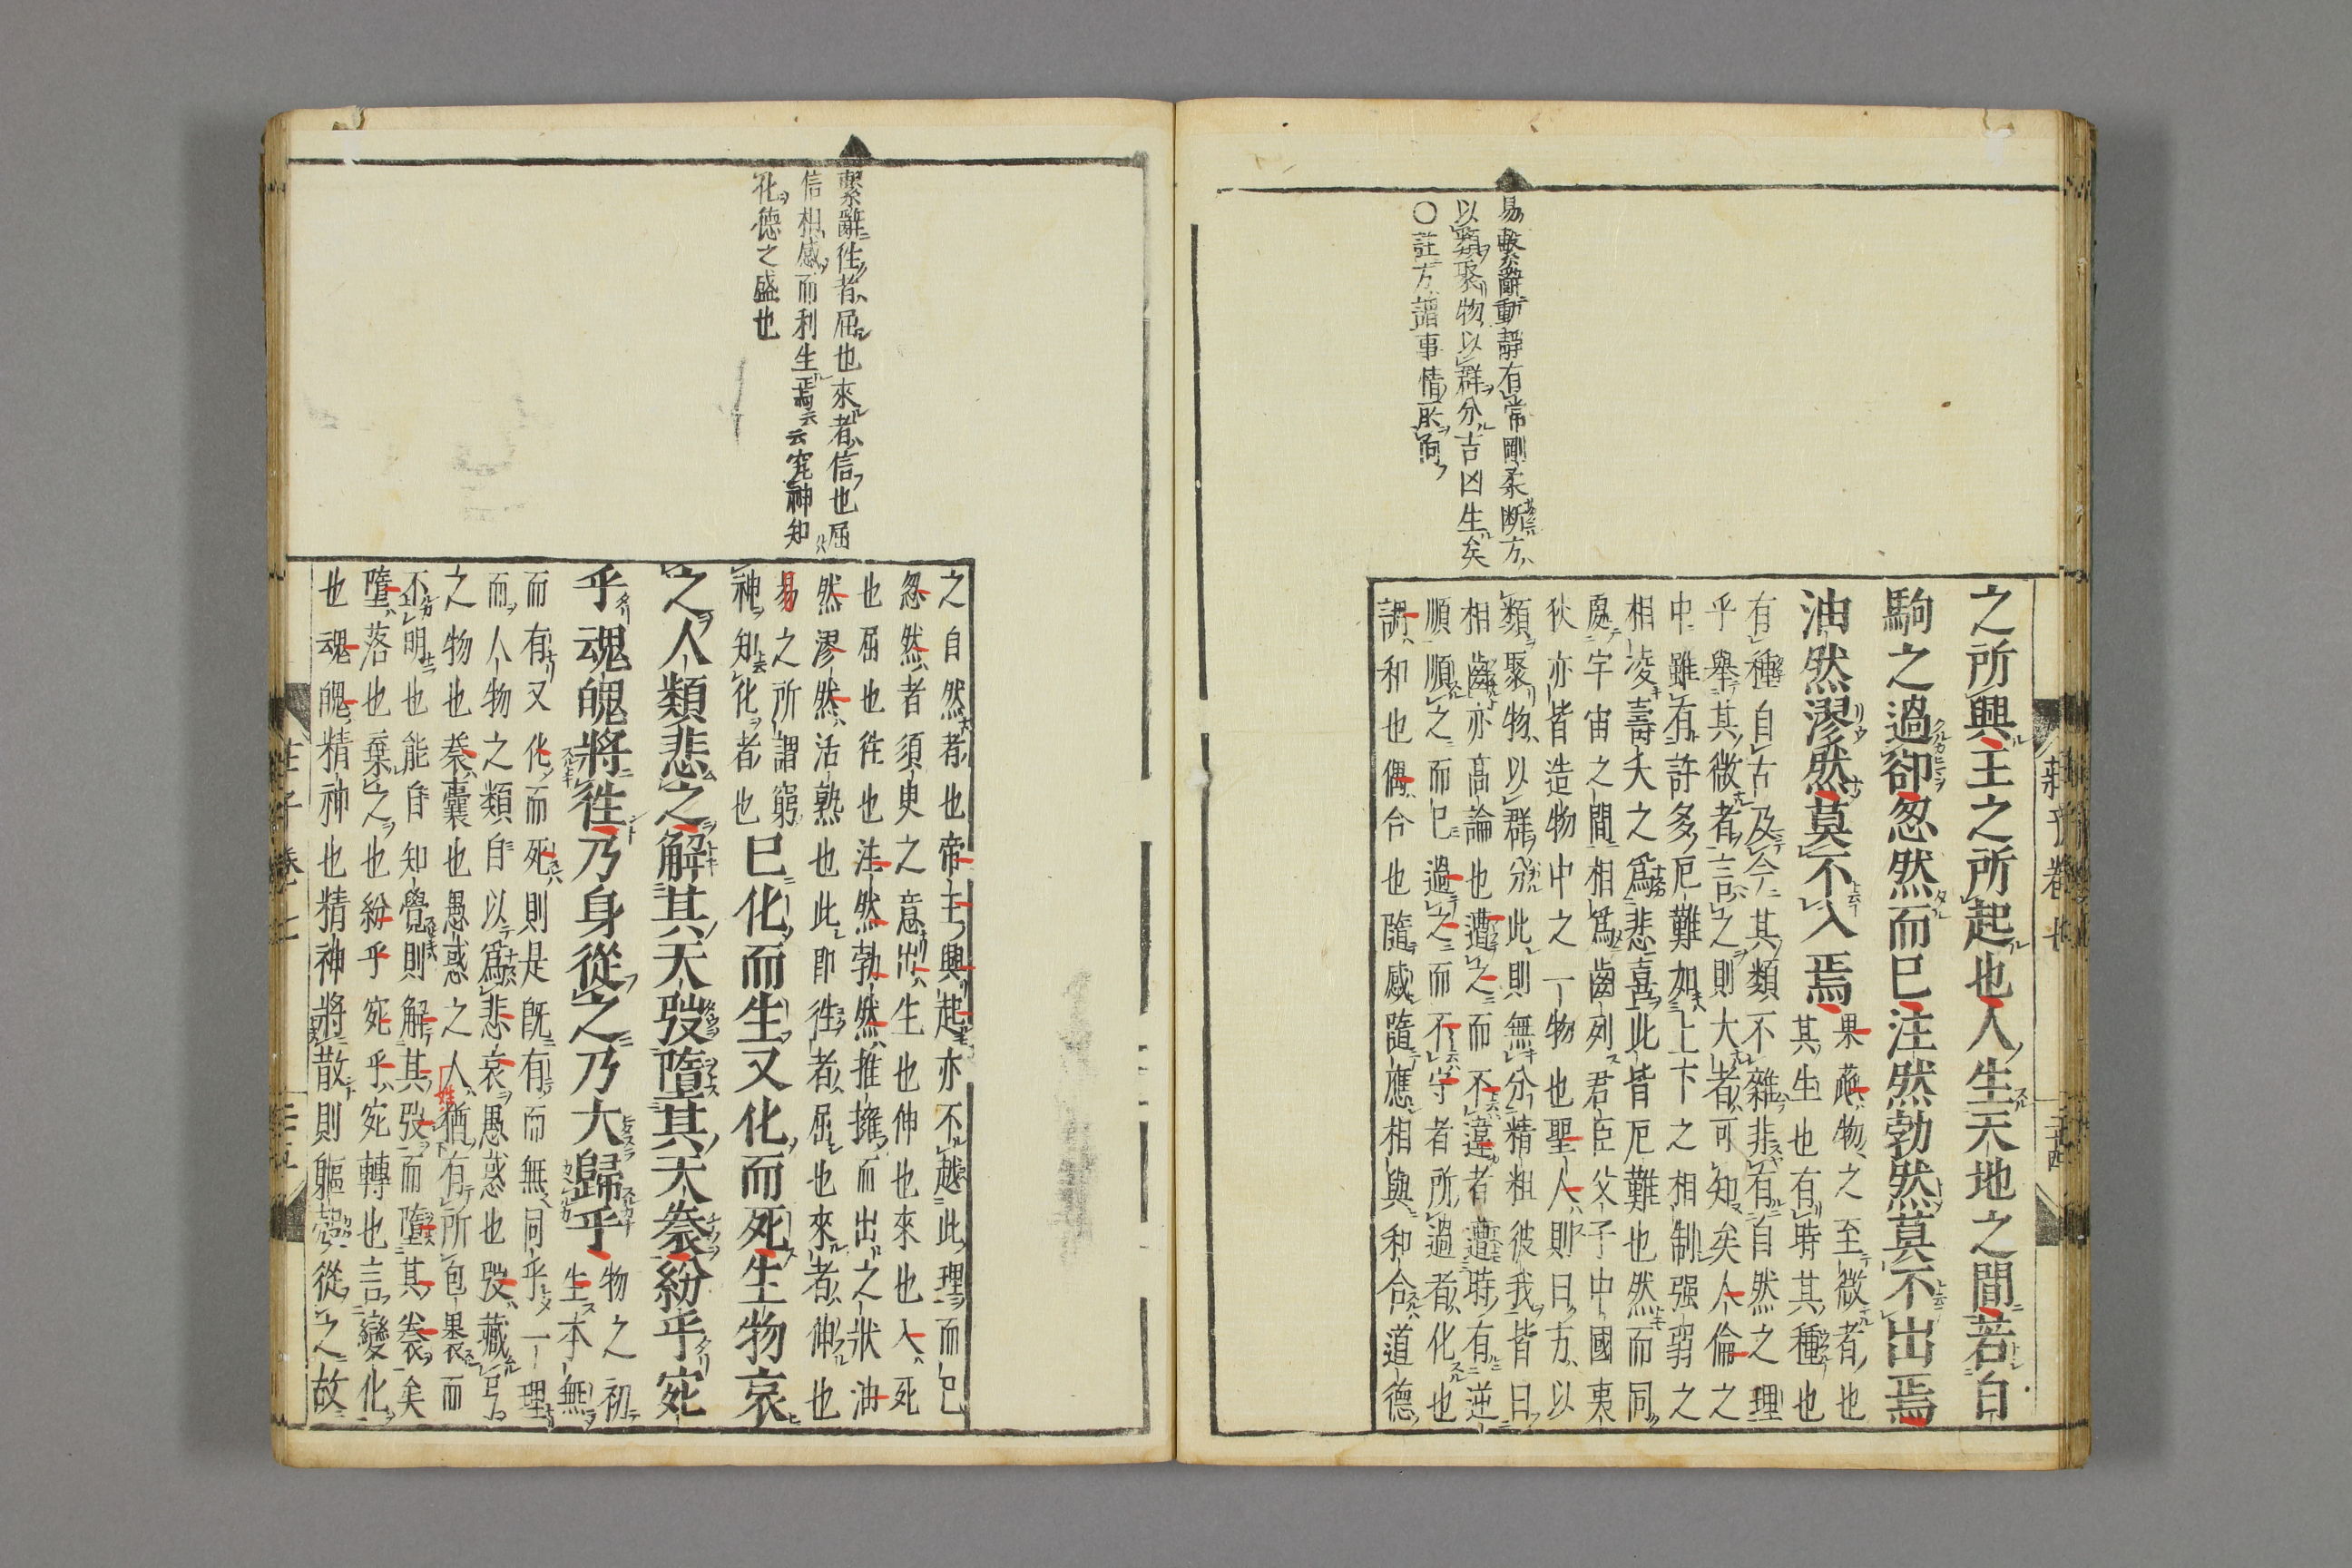 莊子卷七 三十四
易繫辭動靜有常剛柔断方
以類聚物以群分吉凶生矣
〇註方謂事情所向
之所興王之所起也人生天地之間若白
駒之過卻忽然而已注然勃然莫不出焉
油然漻然莫不入焉
果蓏物之至微者也
其生也有時其種也
有種自古及今其類不雜非有自然之理
乎舉其微者言之則大者可知矣人倫之
中雖有許多厄難加上下之相制强弱之
相凌壽夭之爲悲喜此皆厄難也然而同
處宇宙之間相爲齒列君臣父子中國夷
狄亦皆造物中之一物也聖人則曰方以
類聚物以群分此則無分精粗彼我皆曰
相齒亦高論也遭之而不違者遭時有逆
順順之而已過之而不守者所過者化也
調和也偶合也隨感隨應相與和合道德
繫辭徃者屈也來者信也屈
信相感而利生焉云云窮神知
化徳之盛也
之自然者也帝王興起亦不越此理而已
忽然者須臾之意出生也伸也來也入死
也屈也徃也注然勃然推擁而出之狀油
然漻然活熟也此即徃者屈也來者伸也
易之所謂窮
神知化者也
已化而生又化而死生物哀
之人類悲之解其天弢墮其天袠紛乎宛
乎魂魄將徃乃身從之乃大歸乎
物之初
生本無
而有又化而死則是旣有而無同乎一理
而人物之類自以爲悲哀愚惑也弢藏弓
之物也袠囊也愚惑之人猶有所包裹而
不明也能自知覺則解其弢而墮其袠矣
墮落也棄之也紛乎宛乎宛轉也言變化
也魂魄精神也精神將散則軀殼從之故
莊子卷七 三十五